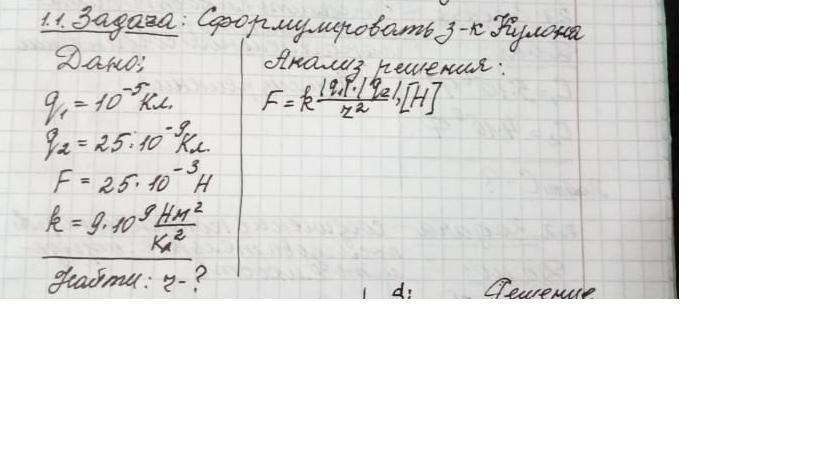 1.1. Задача: Сформулировать з-к Кулона
Дано:
q₁ = 10⁻⁵ Кл.
q₂ = 25·10⁻⁹ Кл.
F = 25·10⁻³ Н
k = 9·10⁹ Нм²/Кл²
Найти: r-?
Анализ решения:
F = k |q₁|·|q₂|/r², [Н]
Решение